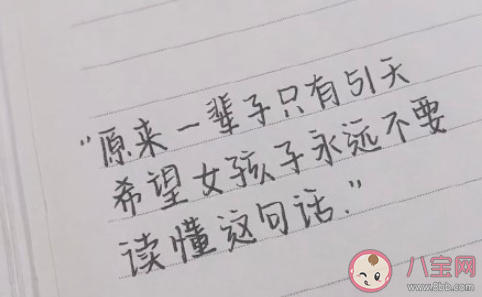 "原来一辈子只有51天
希望女孩子永远不要
读懂这句话."
八宝网
www.8bb.com